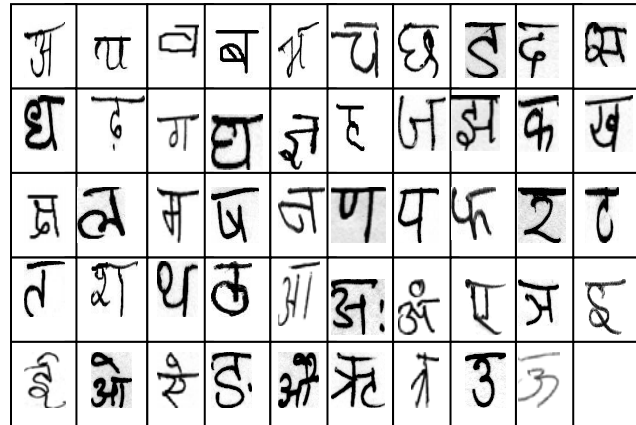 अ य व ब भ च छ ड द स
ध ढ ग घ ज्ञ ह ज झ क ख
क्ष ल म ष न ण प फ र ट
त श थ ठ आ अः अं ए ञ इ
ई ओ ऐ ङ औ ऋ त्र उ ऊ